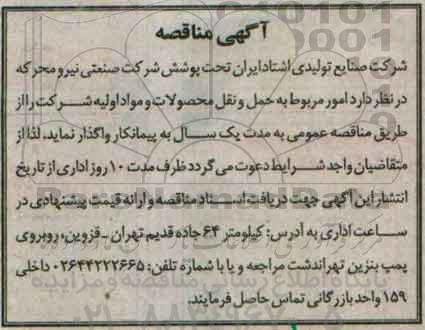 آگهی مناقصه
شرکت صنایع تولیدی اشتادایران تحت پوشش شرکت صنعتی نیرو محرکه
در نظر دارد امور مربوط به حمل و نقل محصولات و مواد اولیه شرکت را از
طریق مناقصه عمومی به مدت یک سال به پیمانکار واگذار نماید، لذا از
متقاضیان واجد شرایط دعوت می گردد ظرف مدت ۱۰ روز اداری از تاریخ
انتشار این آگهی جهت دریافت اسناد مناقصه و ارائه قیمت پیشنهادی در
ساعت اداری به آدرس: کیلومتر ۶۴ جاده قدیم تهران - قزوین، روبروی
پمپ بنزین تهراندشت مراجعه و یا با شماره تلفن: ۰۲۶۴۴۲۲۲۶۶۵ داخلی
۱۵۹ واحد بازرگانی تماس حاصل فرمایند.